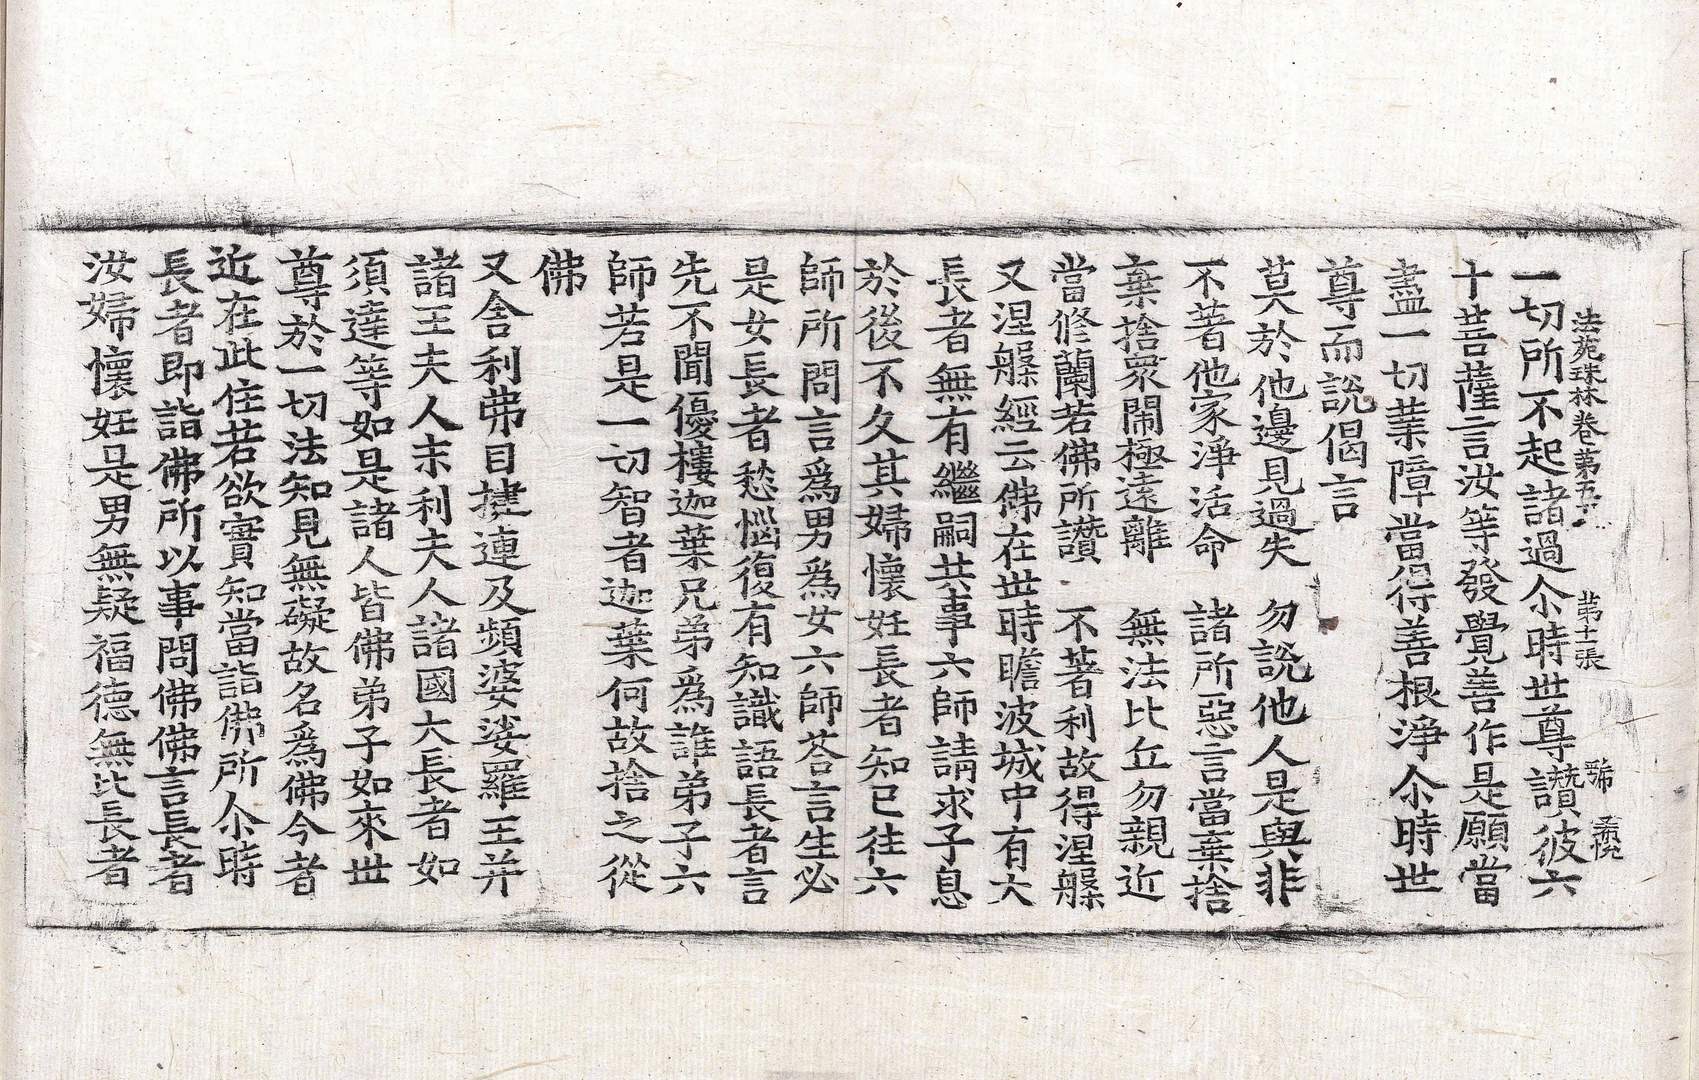 法苑珠林卷第五十 第十一張 號
一切所不起諸過尒時世尊讚彼六
十菩薩言汝等發覺善作是願當
盡一切業障當得善根淨尒時世
尊而說偈言
莫於他邊見過失 勿說他人是與非
不著他家淨活命 諸所惡言當棄捨
棄捨衆閙極遠離 無法比丘勿親近
當修蘭若佛所讚 不著利故得涅槃
又涅槃經云佛在世時瞻波城中有大
長者無有繼嗣共事六師請求子息
於後不久其婦懷妊長者知已往六
師所問言爲男爲女六師荅言生必
是女長者愁惱復有知識語長者言
先不聞優樓迦葉兄弟爲誰弟子六
師若是一切智者迦葉何故捨之從
佛
又舍利弗目揵連及頻婆娑羅王并
諸王夫人末利夫人諸國大長者如
須達等如是諸人皆佛弟子如來世
尊於一切法知見無礙故名爲佛今者
近在此住若欲實知當詣佛所尒時
長者即詣佛所以事問佛佛言長者
汝婦懷妊是男無疑福德無比長者